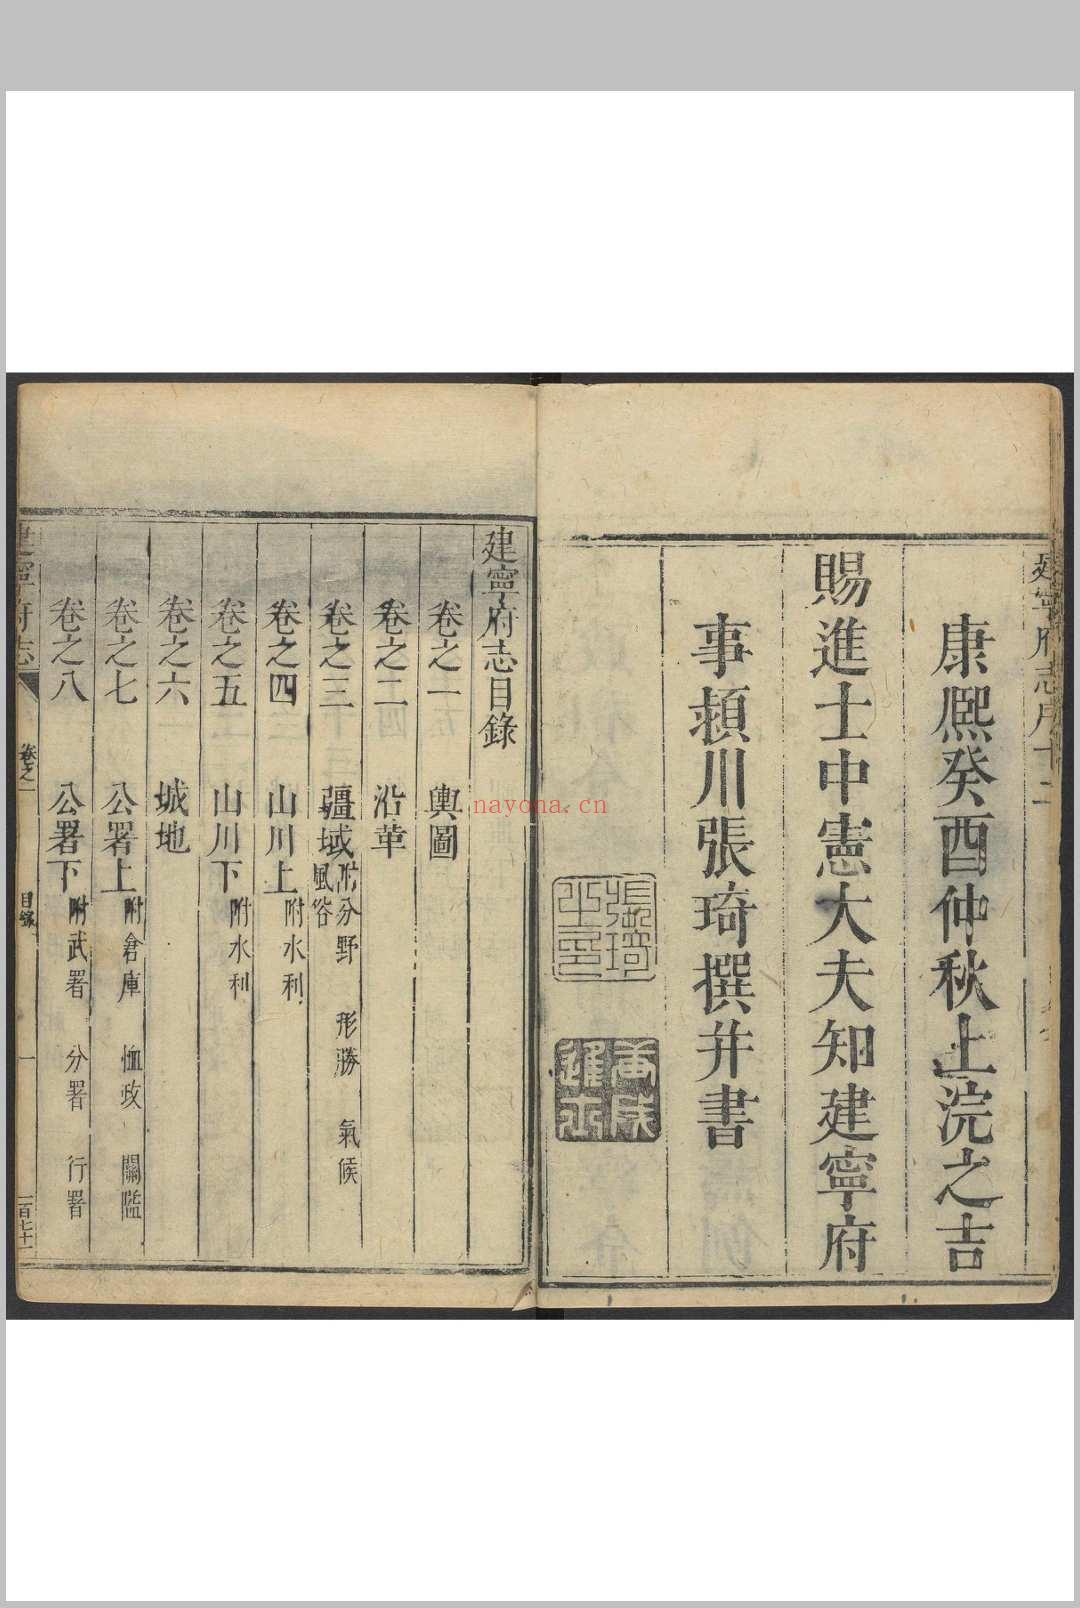 建寧府志序 十二
康熙癸酉仲秋上浣之吉
賜進士中憲大夫知建寧府
事潁川張琦撰并書
張琦之印
建寧府志目錄
卷之一 輿圖
卷之二 沿革
卷之三 疆域 附分野 形勝 氣候 風俗
卷之四 山川上 附水利
卷之五 山川下 附水利
卷之六 城池
卷之七 公署上 附倉庫 恤政 關隘
卷之八 公署下 附武署 分署 行署
建寧府志 卷之一 目錄 一 一百七十一
nayona.cn